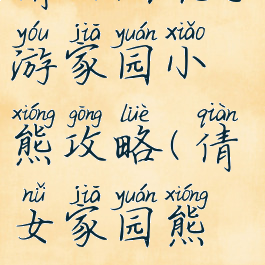 yóu jiā yuán xiǎo
游家园小
xióng gōng lüè qiàn
熊攻略(倩
nǚ jiā yuán xióng
女家园熊